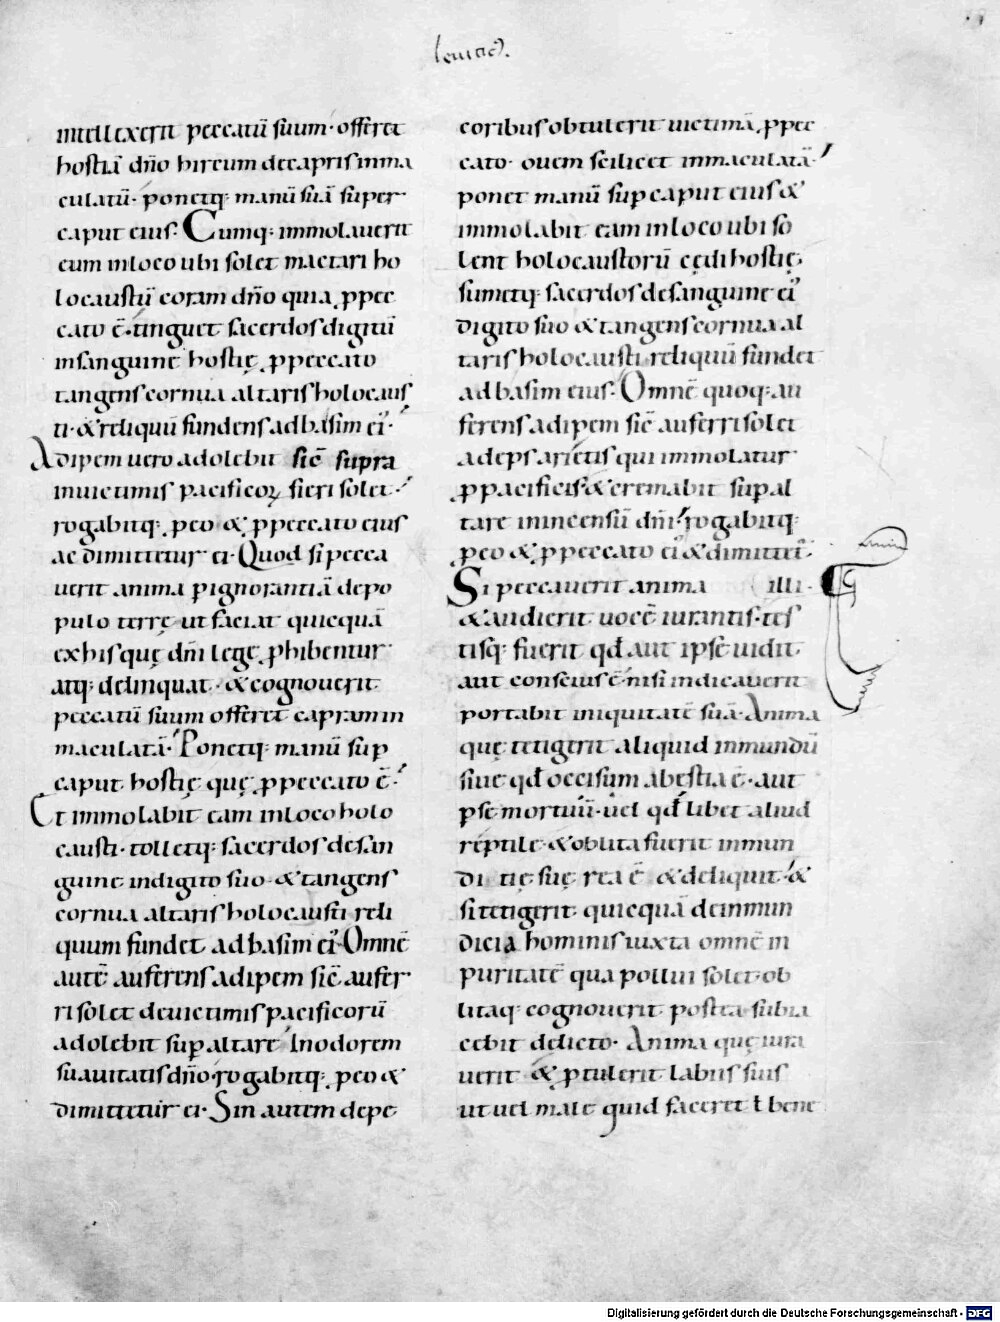 leuitic9.
intellexerit peccatū suum · offeret
hostiā dño hircum decapris inma
culatū · ponetq; manū suā super
caput eius · Cumq; immolauerit
eum inloco ubi solet mactari ho
locaustū coram dño quia ꝓpec
cato ē · tinguet sacerdos digitū
insanguine hostię ꝓpeccato
tangens cornua altaris holocaus
ti · & reliquū fundens adbasim ei'·
Adipem uero adolebit sic̄ supra
inuictimis pacificoꝝ fieri solet ·
rogabitq; ꝓeo & ꝓpeccato eius
ac dimittetur ei · Quod sipecca
uerit anima ꝑignorantiā depo
pulo terrę ut faciat quicquā
exhis quę dñi lege ꝓhibentur
atq; delinquat · & cognouerit
peccatū suum offeret capram in
maculatā · Ponetq; manū suꝑ
caput hostię quę ꝓpeccato ē ·
Et immolabit eam inloco holo
causti · tolletq; sacerdos desan
guine indigito suo · & tangens
cornua altaris holocausti reli
quum fundet adbasim ei' · Omnē
autē auferens adipem sic̄ aufer
ri solet deuictimis pacificorū
adolebit suꝑ altare Inodorem
suauitatis dño · rogabitq; ꝓeo &
dimittetur ei · Sin autem depe
coribus obtulerit uictimā ꝓpec
cato · ouem scilicet inmaculatā ·
ponet manū suꝑ caput eius &
immolabit eam inloco ubi so
lent holocaustorū cędi hostię
sumetq; sacerdos desanguine ei'
digito suo & tangens cornua al
taris holocausti reliquū fundet
adbasim eius · Omnē quoq; au
ferens adipem sic̄ auferri solet
adeps arietis qui immolatur
ꝓpacificis & cremabit suꝑ al
tare inincensū dñi · rogabitq;
ꝓeo & ꝓpeccato ei' & dimittet'
Si peccauerit anima illi ·
& audierit uocē iurantis · tes
tisq; fuerit qđ aut ipse uidit
aut conscius ē · nisi indicauerit
portabit iniquitatē suā · Anima
quę tetigerit aliquid inmundū
siue qđ occisum abestia ē · aut
ꝑse mortuū · uel qđ libet aliud
reptile · & oblita fuerit inmun
ditię suę rea ē & deliquit · &
si tetigerit quicquā deinmun
dicia hominis iuxta omnē in
puritatē qua pollui solet · ob
litaq; cognouerit postea subia
cebit delicto · Anima quę iura
uerit & ꝓtulerit labiis suis
ut uel male quid faceret ł bene
Digitalisierung gefördert durch die Deutsche Forschungsgemeinschaft - DFG